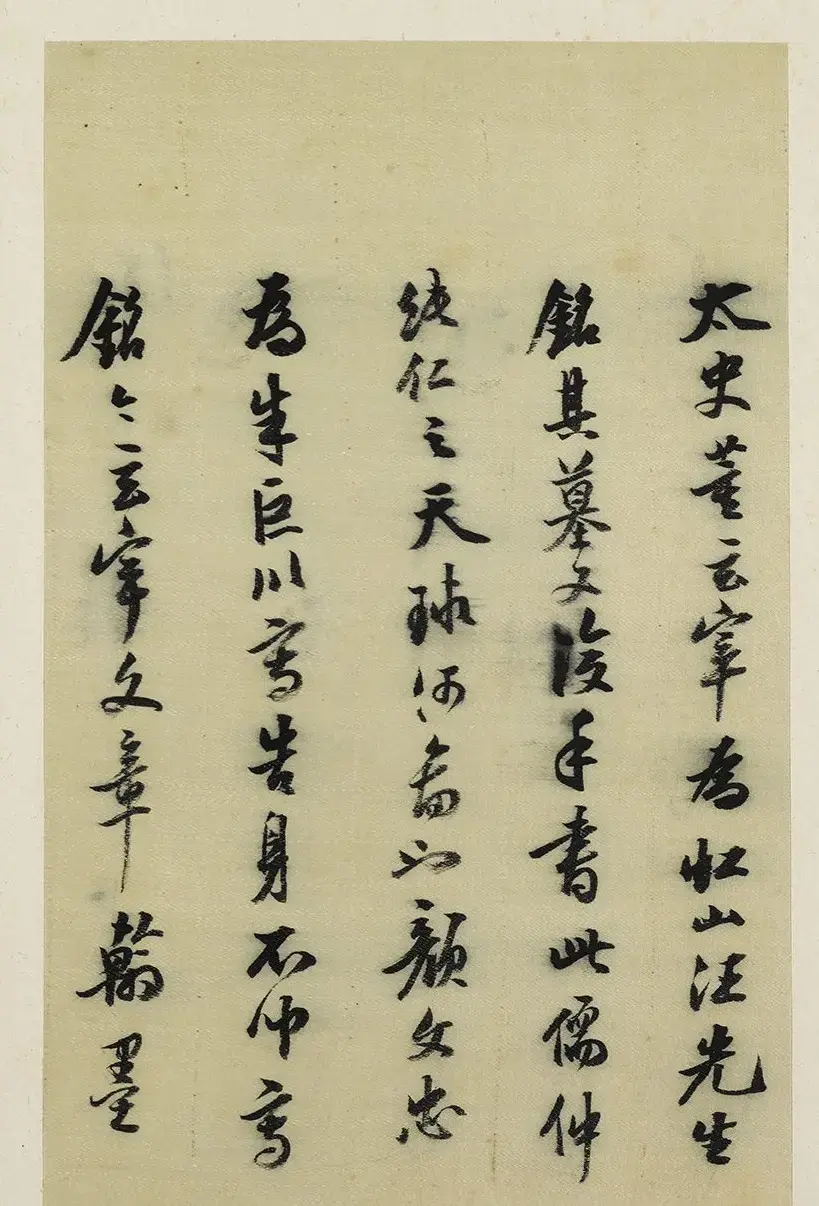 太史董玄宰為山汪先生
銘其墓文復手書此儒仲
純仁之天球河圖也顏文忠
為朱巨川寫告身不寫
銘今玄宰文章翰墨